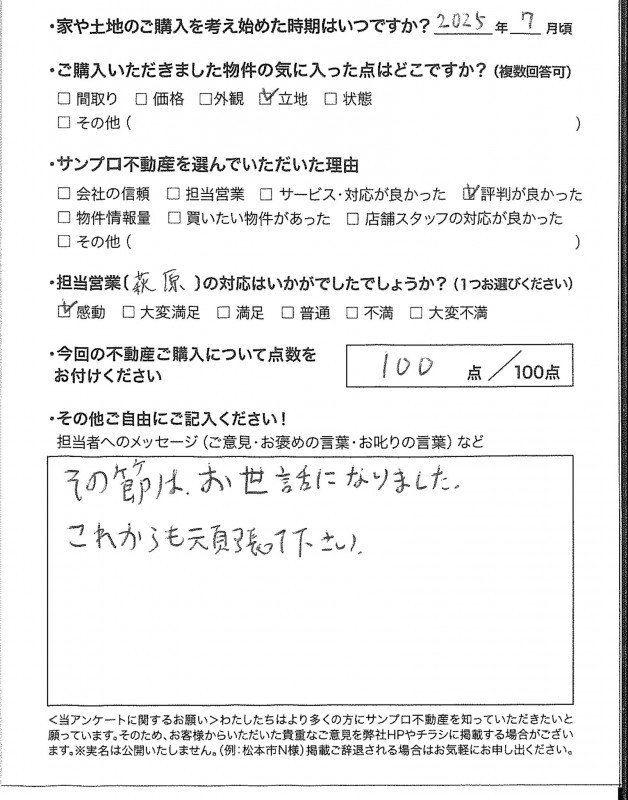 ・家や土地のご購入を考え始めた時期はいつですか? 2025 年 7 月頃
・ご購入いただきました物件の気に入った点はどこですか?(複数回答可)
□ 間取り □ 価格 □外観 ☑立地 □ 状態
□ その他( )
・サンプロ不動産を選んでいただいた理由
□ 会社の信頼 □ 担当営業 □ サービス・対応が良かった ☑評判が良かった
□ 物件情報量 □ 買いたい物件があった □ 店舗スタッフの対応が良かった
□ その他( )
・担当営業(萩原)の対応はいかがでしたでしょうか?(1つお選びください)
☑感動 □ 大変満足 □ 満足 □ 普通 □ 不満 □ 大変不満
・今回の不動産ご購入について点数を
お付けください
100 点/100点
・その他ご自由にご記入ください!
担当者へのメッセージ(ご意見・お褒めの言葉・お叱りの言葉)など
その節は、お世話になりました。
これからも頑張って下さい。
<当アンケートに関するお願い>わたしたちはより多くの方にサンプロ不動産を知っていただきたいと
願っています。そのため、お客様からいただいた貴重なご意見を弊社HPやチラシに掲載する場合がござい
ます。※実名は公開いたしません。(例:松本市N様)掲載ご辞退される場合はお気軽にお申し出ください。